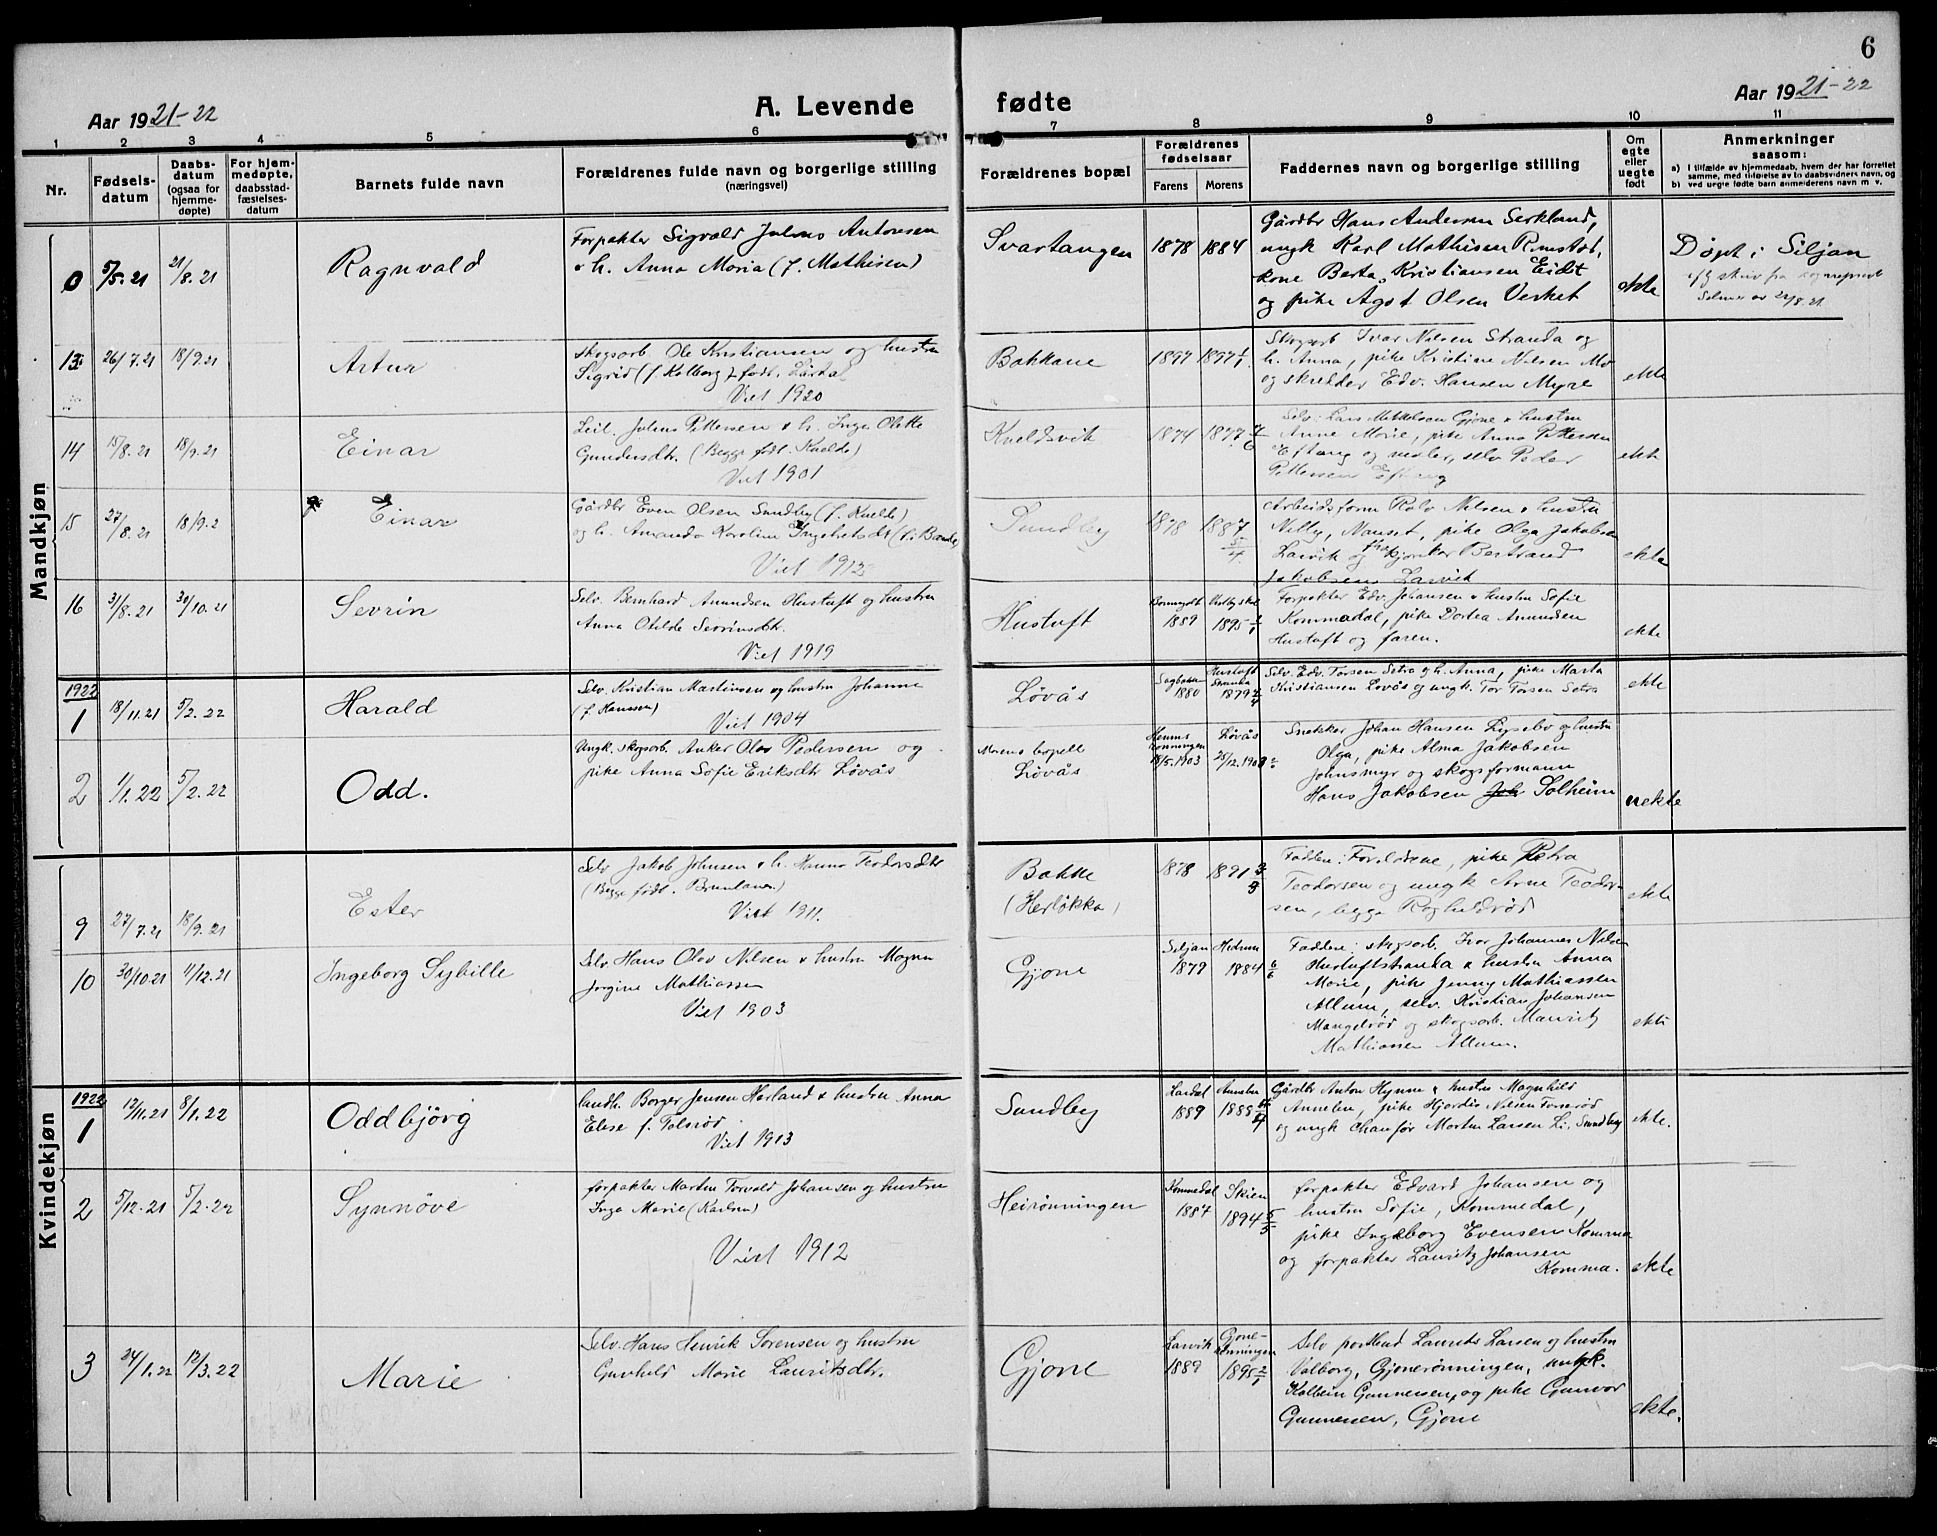 6
Aar 1921-22
A. Levende fødte
Aar 1921-22
1 2 3 4 5 6 7 8 9 10 11
Nr.
Fødsels-
datum
Daabs-
datum
(ogsaa for
hjemme-
døpte)
For hjem-
medøpte,
daabsstad-
fæstelses-
datum
Barnets fulde navn
Forældrenes fulde navn og borgerlige stilling
(næringsvei)
Forældrenes bopæl
Forældrenes
fødselsaar
Farens Morens
Faddernes navn og borgerlige stilling
Om
egte
eller
uegte
født
Anmerkninger
saasom:
a) I tilfælde av hjemmedaab, hvem der har forrettet
samme, med tilføielse av to daabsvidners navn, og
b) ved uegte fødte barn anmelderens navn m. v.
Mandkjøn
0 5/5.21 21/8.21 Ragnvald
Forpakter Sigvald Julius Antonsen
& h. Anna Maria (f. Mathisen)
Svartangen 1878 1884
Gårdbr Hans Andersen Serkland,
ungk Karl Mathisen
kone Berta Kristiansen Eidt
og pike Agot Olsen Verket
ekte
Døpt i Siljan
13 26/7.21 18/9.21 Artur
Skogsarb. Ole Kristiansen og hustru
Sigrid (f. Kolberg) født. Lardal
Viet 1920
Bakkane 1897 1897
Skogsarb Ivar Nilsen Stranda og
h. Anna, pike Kristine Nilsen Mo
og skredder Edv. Hansen Myre
ekte
14 15/8.21 18/9.21 Einar
Leil. Julius Pettersen & h. Inga Olette
Gundersdtr. (Begge født. Kvelde)
Viet 1901
Kveldsvik 1874 1877 7/6
Selv. Lars Mikkelsen Gjone & hustru
Anne Marie, pike Anna Pettersen
Eftang og maler, selv Peder
Pettersen Eftang
ekte
15 27/8.21 18/9.2 Einar
Gårdbr Even Olsen Sundby (f. Kvelde)
og h. Amanda Karoline Ingebretsdt
Viet 1912
Sundby 1878 1887
Arbeidsform Rolv Nilsen & hustru
Nelly, Nanset, pike Olga Jakobsen
Larvik og Bertrand
Jakobsen Larvik
ekte
16 31/8.21 30/10.21 Sevrin
Selv. Bernhard Amundsen Hustuft og hustru
Anna Otilde Sevrinsdtr.
Viet 1919
Hustuft 1889 1895
Forpakter Edv. Johansen & hustru Sofie
Kommedal, pike Dortea Amundsen
Hustuft og faren.
ekte
1922
1 18/11.21 5/2.22 Harald
Selv. Kristian Martinsen og hustru Johanne
(f. Hanssen) Viet 1904
Løvås 1880 1879
Selv. Edv Torsen Setra og h. Anna, pike Marta
Kristiansen Lovås og ungk. Tor Torsen Setra
ekte
2 1/1.22 5/2.22 Odd.
Ungk. skogsarb. Anker Olav Pedersen og
pike Anna Sofie Eriksdtr Løvås
Morens bopell
Løvås
18/5.1903 Løvås
Snekker Johan Hansen Lysebo og hustru
Olga, pike Alma Jakobsen
Johnsmyr og skogsformann
Hans Jakobsen Solheim
uekte
Kvindekjøn
9 27/7.21 18/9.21 Ester
Selv Jakob Johnsen & h. Hanna Teodorsdtr
(Begge født. Brunlanes)
Viet 1911.
Bakke
(Herløkka)
1878 1891 3/3
Faddere: Foreldrene, pike Petra
Teodorsen og ungk Arne Teodor-
sen, begge
ekte
10 30/10.21 11/12.21 Ingeborg Sybille
Selv. Hans Olav Nilsen & hustru Magna
Jorgine Mathiassen
Viet 1903
Gjone
Siljan 1879 Hedrum 1884 6/6
Faddere: skogsarb. Ivar Johannes Nilsen
Hustuftstranda & hustru Anna
Marie, pike Jenny Mathiassen
Allum, selv. Kristian Johansen
Mangelrød og skogsarb. Mauritz
Mathiassen Allum.
ekte
1922
1 17/11.21 8/1.22 Oddbjörg
Landh. Borger Jensen Harland & hustru Anna
Elise f. Tolsrød
Viet 1913
Sundby
Lardal 1889 1888
Gårdbr Anton Hynne & hustru Magnhild
Annelen, pike Hjordis Nilsen
og ungk chaufør Morten Larsen Li, Sundby
ekte.
2 5/12.21 5/2.22 Synnöve
forpakter Martin Torvald Johansen og hustru
Inga Marie (Karlsen)
Viet 1912
Heirønningen
Kommedal 1887 Skien 1894 5/5
forpakter Edvard Johansen og
hustru Sofie, Kommedal,
pike Ingeborg Evensen Komma
og forpakter Lauritz Johansen
Komma.
ekte
3 24/1.22 12/3.22 Marie
Selv. Hans Henrik Sorensen og hustru
Gunhild Marie Lauritsdtr.
Gjone
Larvik 1889
Gjone-
rønningen
1895 2/1
Selv postbud Laurits Larsen og hustru
Valborg, Gjonerønningen, ungk.
Kolbein Gunnersen, og pike Gunvor
Gunnersen, Gjone
ekte.